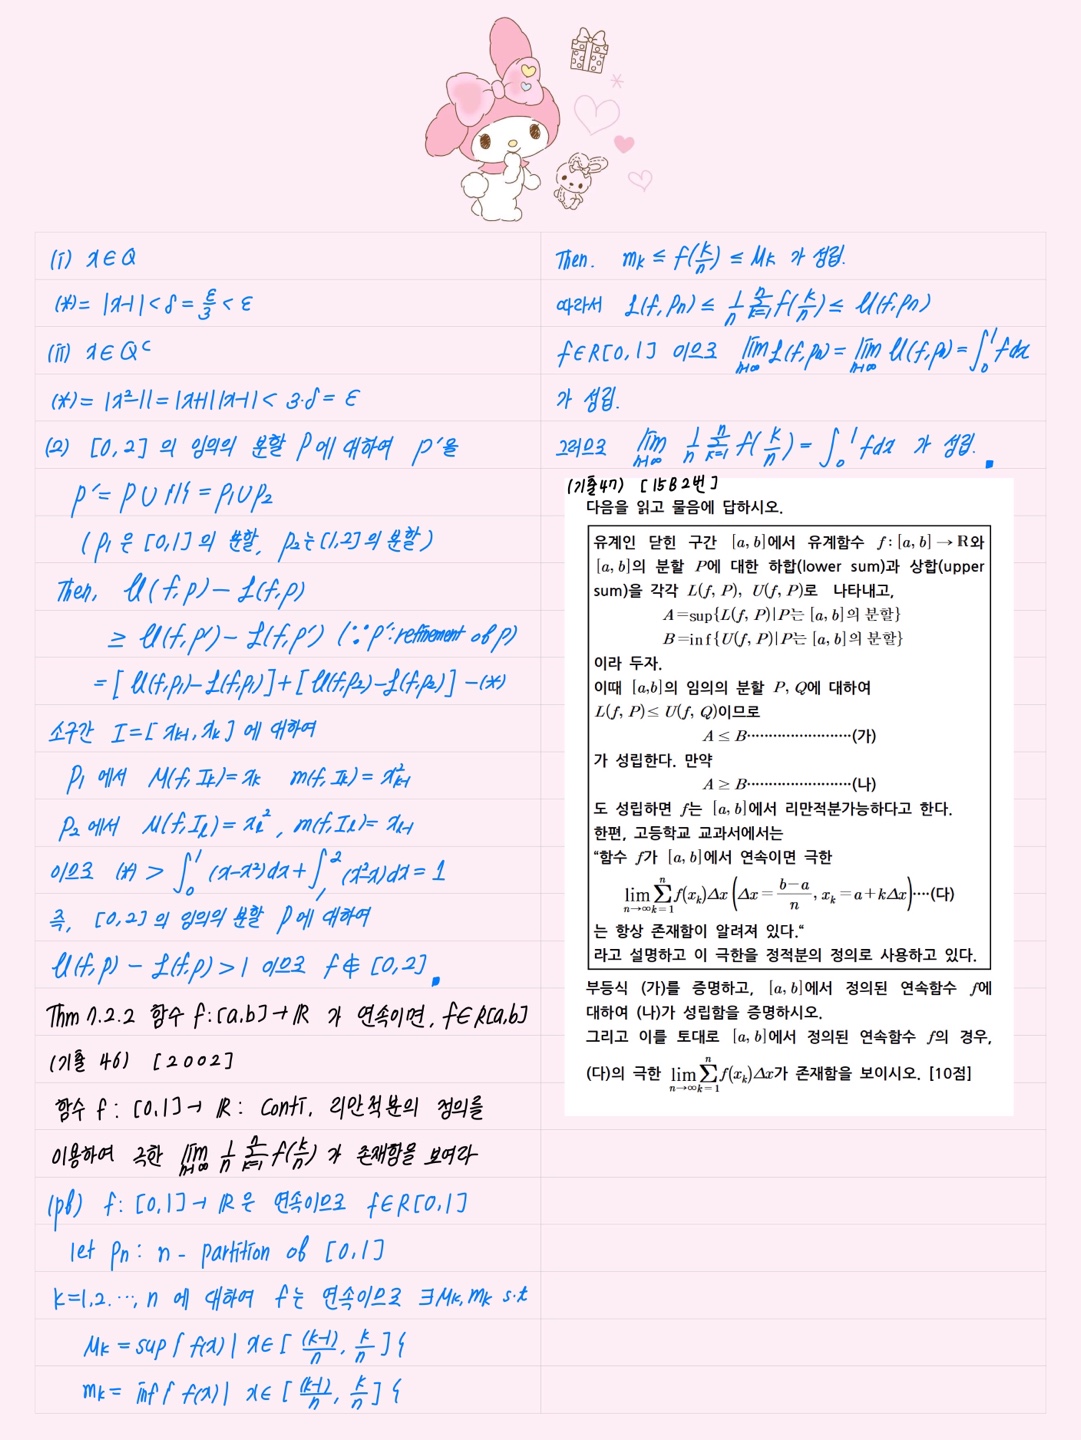 (i) x∈Q
(*)= |x-1| < δ = ε/3 < ε
(ii) x∈Qᶜ
(*)= |x²-1| = |x+1||x-1| < 3·δ = ε
(2) [0,2] 의 임의의 분할 P에 대하여 P'을
P' = P∪{1} = P₁∪P₂
(P₁은 [0,1]의 분할, P₂는 [1,2]의 분할)
Then, U(f,P) - L(f,P)
≥ U(f,P') - L(f,P') (∵P': refinement of P)
= [U(f,P₁)-L(f,P₁)] + [U(f,P₂)-L(f,P₂)] -(*)
소구간 I=[xₖ₋₁, xₖ] 에 대하여
P₁ 에서 M(f,Iₖ)=xₖ m(f,Iₖ)=x²ₖ₋₁
P₂ 에서 M(f,Iₖ)=xₖ², m(f,Iₖ)=xₖ₋₁
이므로 (*) > ∫₀¹ (x-x²)dx + ∫₁² (x²-x)dx = 1
즉, [0,2]의 임의의 분할 P에 대하여
U(f,P) - L(f,P) > 1 이므로 f∉[0,2].
Thm 7.2.2 함수 f:[a,b]→ℝ 가 연속이면, f∈R[a,b]
(기출 46) [2002]
함수 f: [0,1]→ℝ: Conti, 리만적분의 정의를
이용하여 극한 lim n→∞ 1/n Σ k=1 n f(k/n) 가 존재함을 보여라
(pf) f: [0,1]→ℝ은 연속이므로 f∈R[0,1]
let Pn: n- partition of [0,1]
k=1,2,…,n 에 대하여 f는 연속이므로 ∃Mₖ, mₖ s.t
Mₖ = sup{ f(x) | x∈[(k-1)/n, k/n] }
mₖ = inf{ f(x) | x∈[(k-1)/n, k/n] }
Then. mₖ ≤ f(k/n) ≤ Mₖ 가 성립.
따라서 L(f,Pn) ≤ 1/n Σ k=1 n f(k/n) ≤ U(f,Pn)
f∈R[0,1] 이므로 lim n→∞ L(f,Pn) = lim n→∞ U(f,Pn) = ∫₀¹ f dx
가 성립.
그러므로 lim n→∞ 1/n Σ k=1 n f(k/n) = ∫₀¹ f dx 가 성립.
(기출47) [15B 2번]
다음을 읽고 물음에 답하시오.
유계인 닫힌 구간 [a, b]에서 유계함수 f : [a, b] → ℝ와
[a, b]의 분할 P에 대한 하합(lower sum)과 상합(upper
sum)을 각각 L(f, P), U(f, P)로 나타내고,
A=sup{L(f, P)|P는 [a, b]의 분할}
B=inf{U(f, P)|P는 [a, b]의 분할}
이라 두자.
이때 [a,b]의 임의의 분할 P, Q에 대하여
L(f, P)≤ U(f, Q)이므로
A ≤ B························(가)
가 성립한다. 만약
A ≥ B························(나)
도 성립하면 f는 [a, b]에서 리만적분가능하다고 한다.
한편, 고등학교 교과서에서는
“함수 f가 [a, b]에서 연속이면 극한
lim n→∞ Σ k=1 n f(xₖ)Δx (Δx = (b-a)/n, xₖ = a+kΔx)····(다)
는 항상 존재함이 알려져 있다.“
라고 설명하고 이 극한을 정적분의 정의로 사용하고 있다.
부등식 (가)를 증명하고, [a, b]에서 정의된 연속함수 f에
대하여 (나)가 성립함을 증명하시오.
그리고 이를 토대로 [a, b]에서 정의된 연속함수 f의 경우,
(다)의 극한 lim n→∞ Σ k=1 n f(xₖ)Δx가 존재함을 보이시오. [10점]